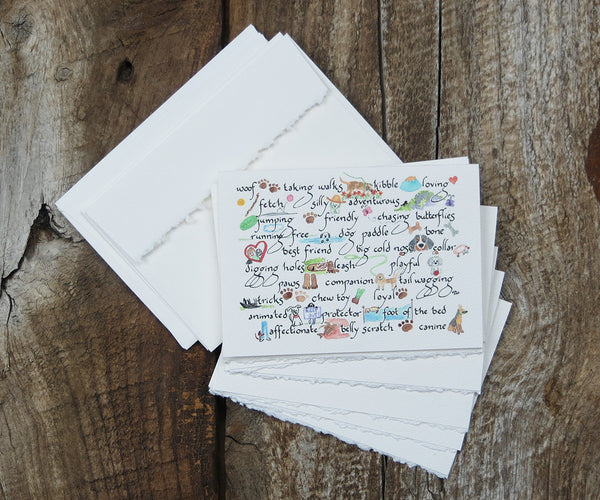 woof taking walks kibble loving
fetch silly adventurous
jumping friendly chasing butterflies
running free dog paddle bone
best friend big cold nose collar
digging holes leash playful
paws companion tail wagging
tricks chew toy loyal
animated protector foot of the bed
affectionate belly scratch canine